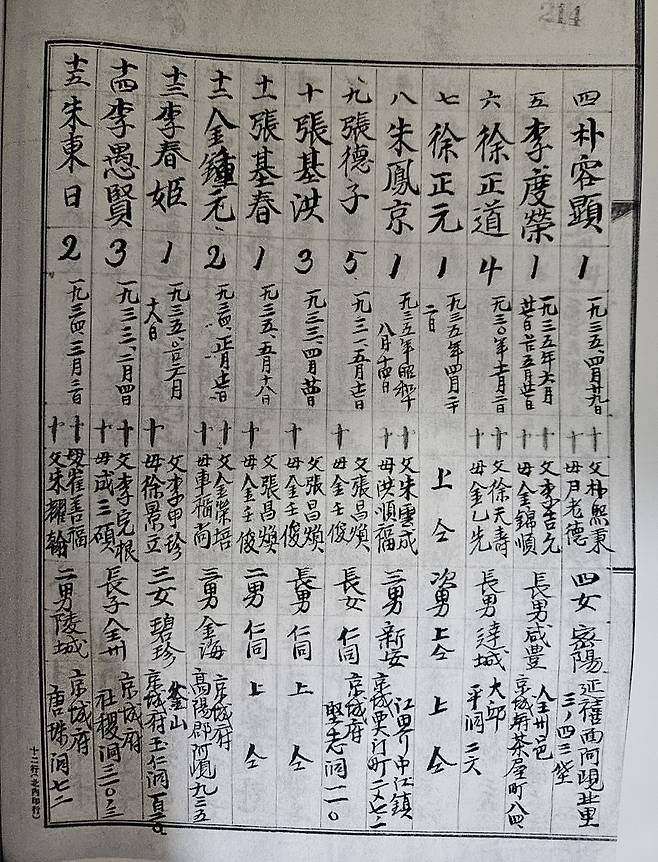 214
四 朴容顯 1 一九三五四月廿九日 十 父朴熙東 母月老德 四女 密陽 延禧面阿峴北里 三ノ四三號
五 李度榮 1 一九三五年六月 廿日 廿五月廿日 十十 父李吉允 母金錦順 長男 咸豊 全州邑 京城府茶屋町八四
六 徐正道 4 一九三〇年十一月二日 十十 父徐天壽 母金乙先 長男 達城 大邱 平洞二六
七 徐正元 1 一九三五年四月二十二日 十 上仝 次男 上仝 上仝
八 朱鳳京 1 一九三五年昭和十 八月十四日 十十 父朱雲成 母洪順福 三男 新安 江界中江鎮 京城
九 張德子 5 一九三一、五月廿日 十 父張昌煥 母金壬俊 長女 仁同 京城府 堅志洞一一〇
十 張基洪 3 一九三三、四月廿日 十 父張昌煥 母金壬俊 長男 仁同 上仝
十一 張基春 1 一九三五、五月十八日 十 父張昌煥 母金壬俊 二男 仁同 上仝
十二 金鍾元 2 一九三四、正月廿日 十十 父金榮培 母車福尚 三男 金海 京城府 高陽郡阿峴九三五
十三 李春姬 1 一九三五、 十八日 十 父李甲珍 母徐景立 三女 碧珍 釜山 京城府玉仁洞
十四 李愚賢 3 一九三三、二月四日 十十 父李完根 母成三碩 長子 全州 京城府 社稷洞三一〇ノ三
十五 朱東日 2 一九三四、三月三日 十十 母崔善福 父朱耀翰 二男 陵城 京城府 唐珠洞七二
十二行(北內印行)